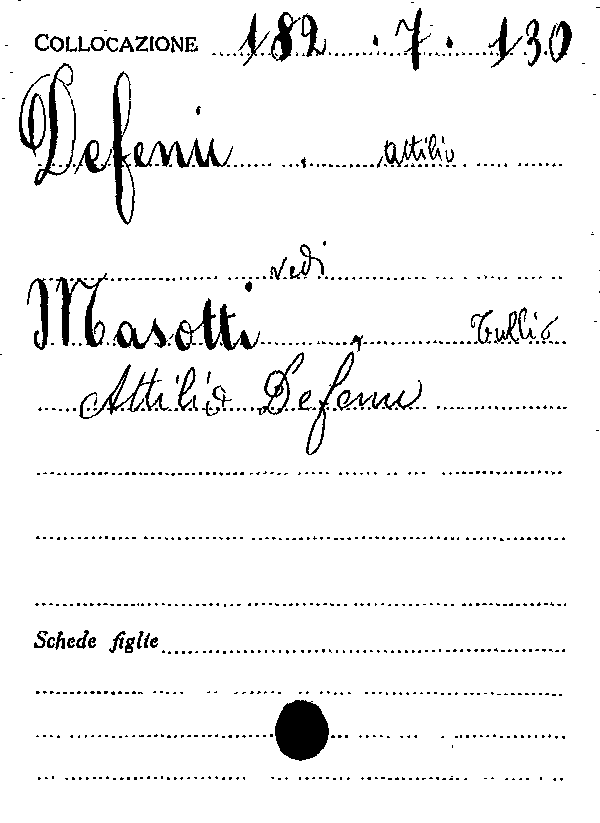 COLLOCAZIONE 182 . 7 . 130
Defenu . Attilio
vedi
Masotti , Tullio
Attilio Defenu
Schede figlie